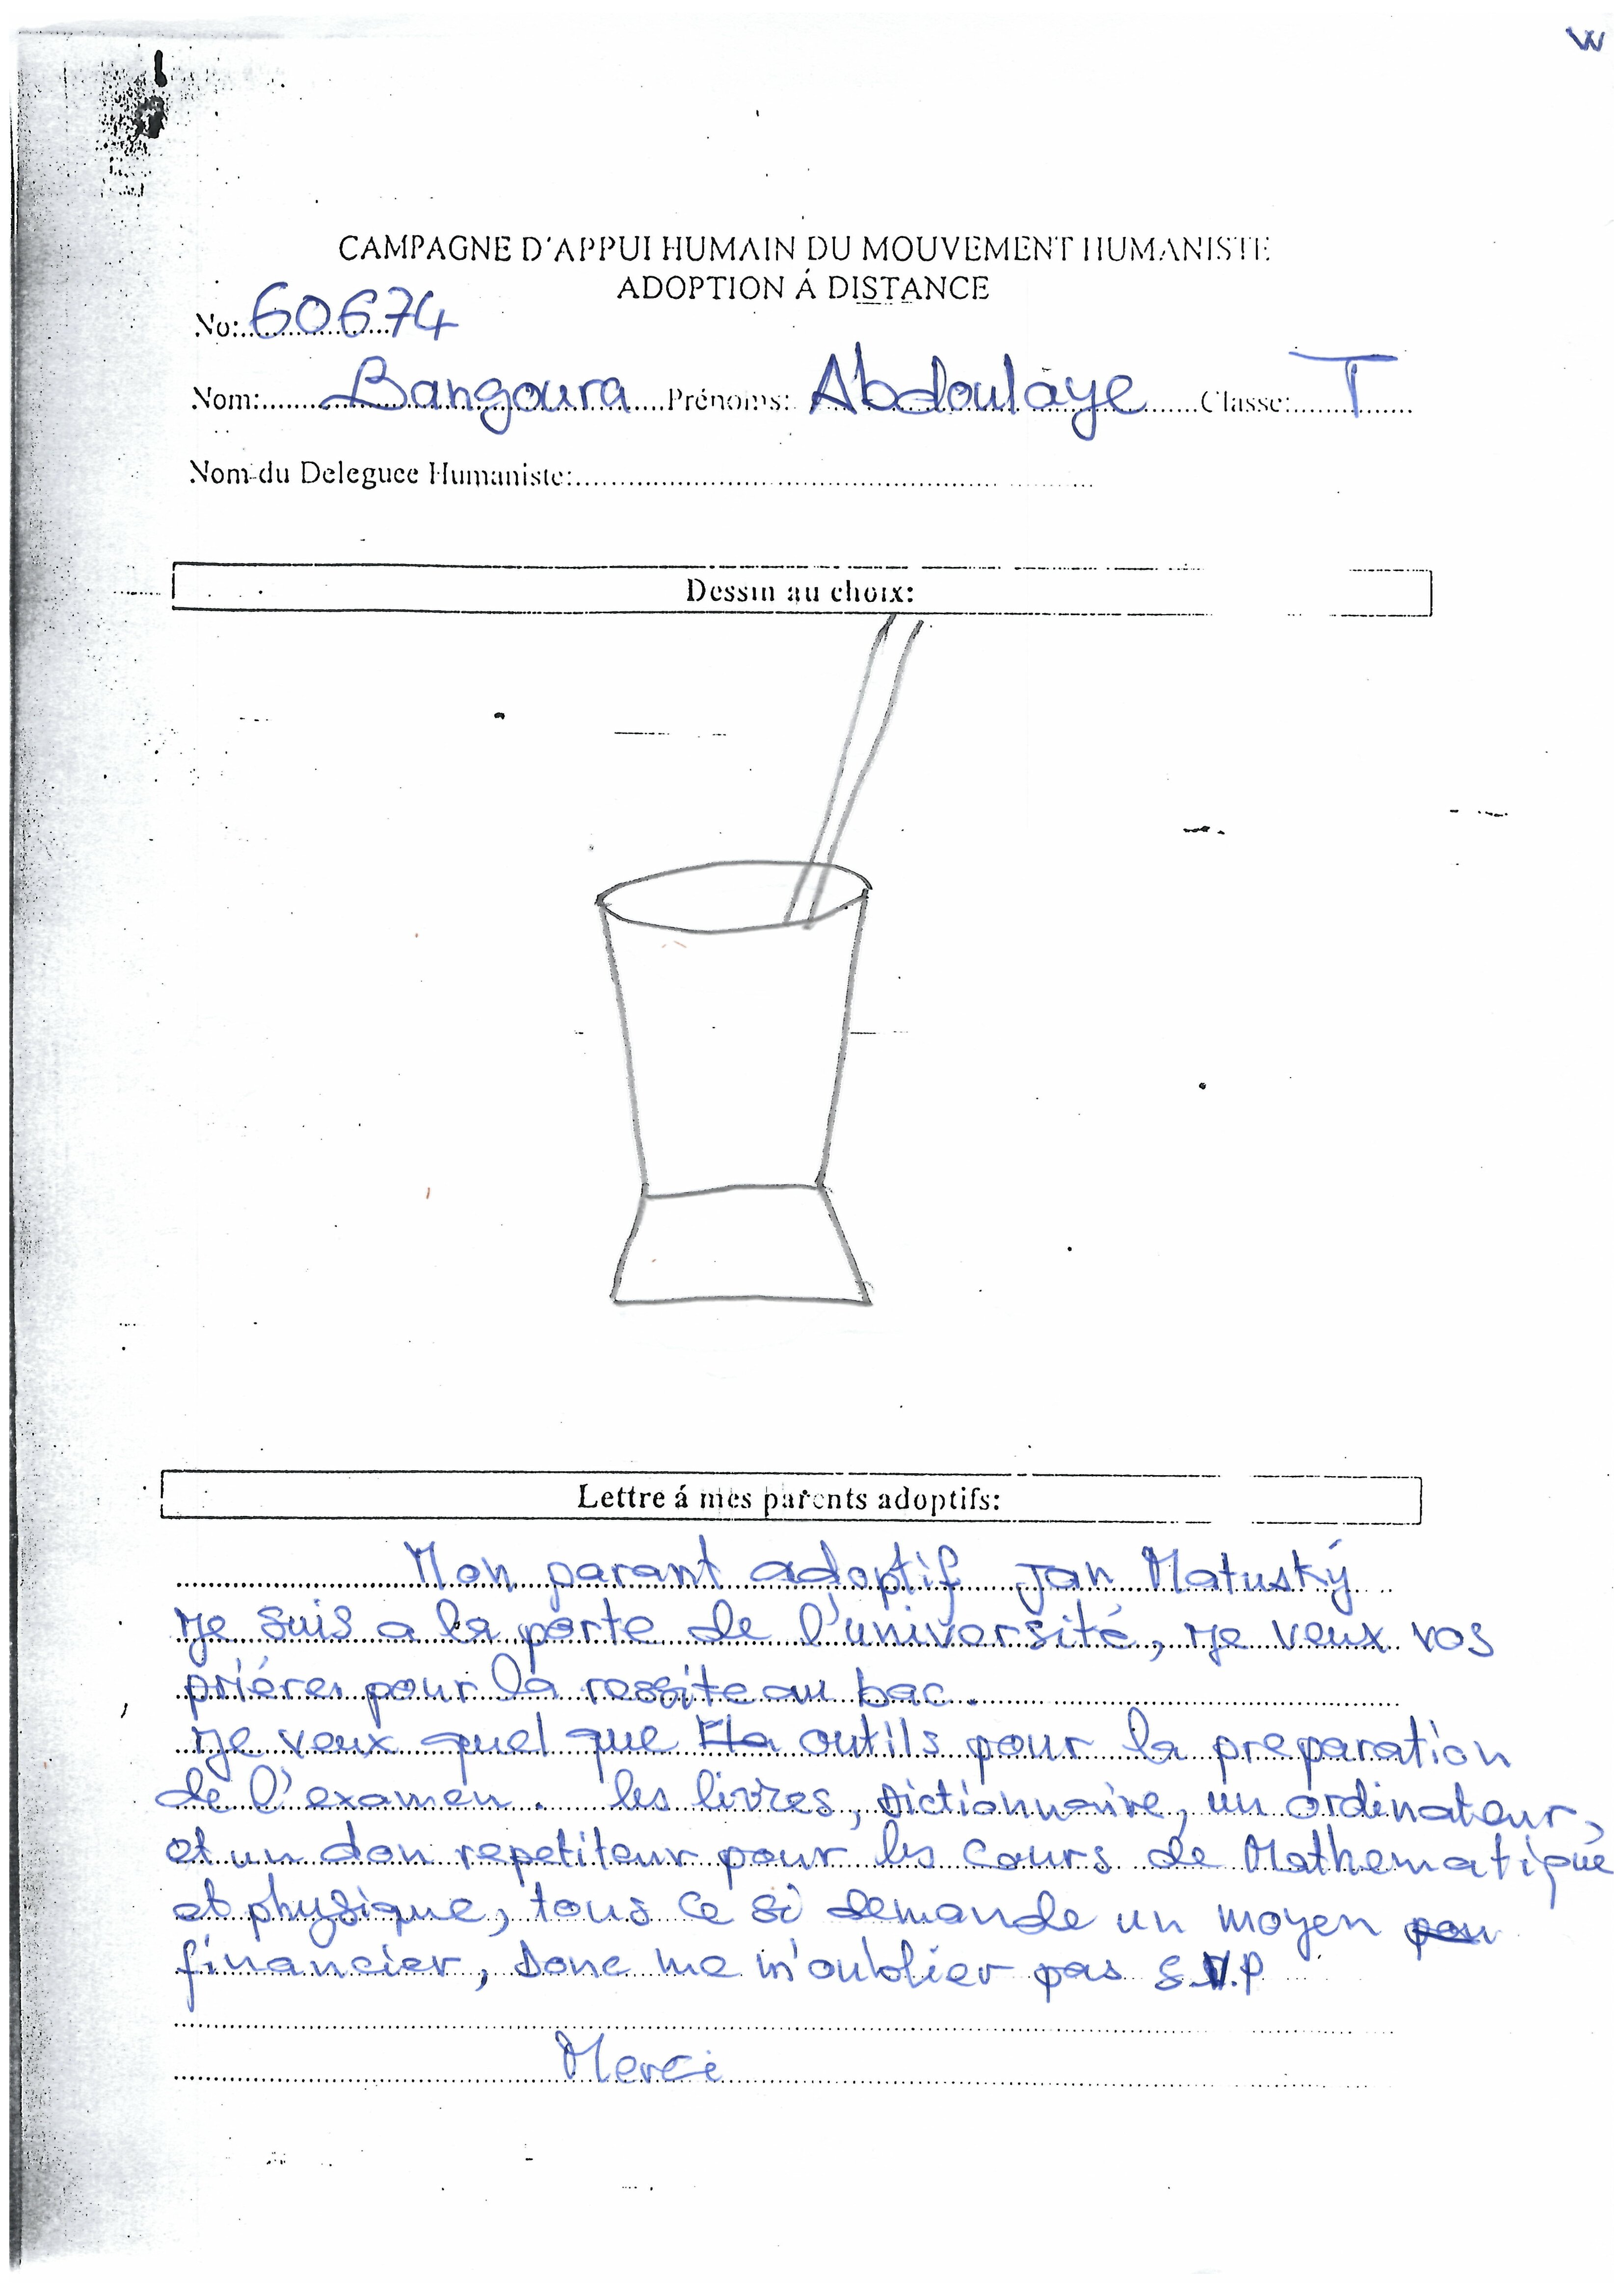 W
CAMPAGNE D'APPUI HUMAIN DU MOUVEMENT HUMANISTE
ADOPTION Á DISTANCE
No: 60674
Nom: Bangoura Prénoms: Abdoulaye Classe: T
Nom du Deleguee Humaniste:
Dessin au choix:
Lettre á mes parents adoptifs:
Mon parant adoptif Jan Matuský
je suis a la porte de l'université, je veux vos
priéres pour la ressite au bac.
je veux quel que outils pour la preparation
de l'examen. les livres, dictionnaire, un ordinateur,
et un don repetiteur pour les cours de Mathematique
et physique, tous ce si demande un moyen
financier, donc me m'oublier pas S.V.P
Merci